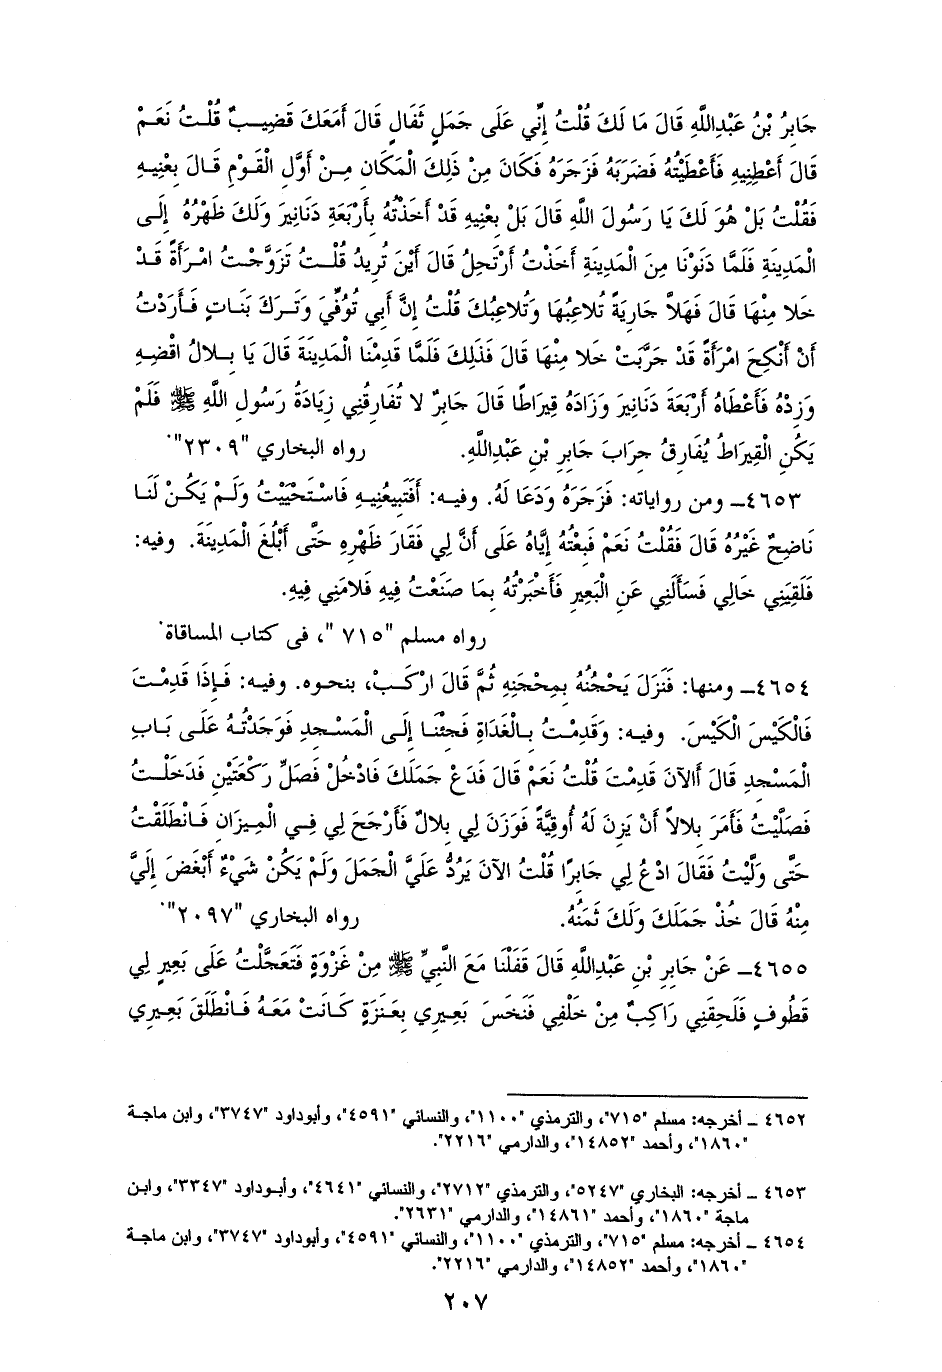 جَابِرُ بْنُ عَبْدِاللَّهِ قَالَ مَا لَكَ قُلْتُ إِنِّي عَلَى جَمَلٍ ثَفَالٍ قَالَ أَمَعَكَ قَضِيبٌ قُلْتُ نَعَمْ
قَالَ أَعْطِنِيهِ فَأَعْطَيْتُهُ فَضَرَبَهُ فَزَجَرَهُ فَكَانَ مِنْ ذَلِكَ الْمَكَانِ مِنْ أَوَّلِ الْقَوْمِ قَالَ بِعْنِيهِ
فَقُلْتُ بَلْ هُوَ لَكَ يَا رَسُولَ اللَّهِ قَالَ بَلْ بِعْنِيهِ قَدْ أَخَذْتُهُ بِأَرْبَعَةِ دَنَانِيرَ وَلَكَ ظَهْرُهُ إِلَى
الْمَدِينَةِ فَلَمَّا دَنَوْنَا مِنَ الْمَدِينَةِ أَخَذْتُ أَرْتَحِلُ قَالَ أَيْنَ تُرِيدُ قُلْتُ تَزَوَّجْتُ امْرَأَةً قَدْ
خَلَا مِنْهَا قَالَ فَهَلاَّ جَارِيَةً تُلاعِبُهَا وَتُلاعِبُكَ قُلْتُ إِنَّ أَبِي تُوُفِّيَ وَتَرَكَ بَنَاتٍ فَأَرَدْتُ
أَنْ أَنْكِحَ امْرَأَةً قَدْ جَرَّبَتْ خَلا مِنْهَا قَالَ فَذَلِكَ فَلَمَّا قَدِمْنَا الْمَدِينَةَ قَالَ يَا بِلالُ اقْضِهِ
وَزِدْهُ فَأَعْطَاهُ أَرْبَعَةَ دَنَانِيرَ وَزَادَهُ قِيرَاطًا قَالَ جَابِرٌ لا تُفَارِقُنِي زِيَادَةُ رَسُولِ اللَّهِ ﷺ فَلَمْ
يَكُنِ الْقِيرَاطُ يُفَارِقُ جِرَابَ جَابِرِ بْنِ عَبْدِاللَّهِ. رواه البخاري "٢٣٠٩".
٤٦٥٣ـ ومن رواياته: فَزَجَرَهُ وَدَعَا لَهُ. وفيه: أَفَتَبِيعُنِيهِ فَاسْتَحْيَيْتُ وَلَمْ يَكُنْ لَنَا
نَاضِحٌ غَيْرُهُ قَالَ فَقُلْتُ نَعَمْ فَبِعْتُهُ إِيَّاهُ عَلَى أَنَّ لِي فَقَارَ ظَهْرِهِ حَتَّى أَبْلُغَ الْمَدِينَةَ. وفيه:
فَلَقِيَنِي خَالِي فَسَأَلَنِي عَنِ الْبَعِيرِ فَأَخْبَرْتُهُ بِمَا صَنَعْتُ فِيهِ فَلامَنِي فِيهِ.
رواه مسلم "٧١٥"، فى كتاب المساقاة.
٤٦٥٤ـ ومنها: فَنَزَلَ يَحْجُنُهُ بِمِحْجَنِهِ ثُمَّ قَالَ ارْكَبْ، بنحوه. وفيه: فَإِذَا قَدِمْتَ
فَالْكَيْسَ الْكَيْسَ. وفيه: وَقَدِمْتُ بِالْغَدَاةِ فَجِئْنَا إِلَى الْمَسْجِدِ فَوَجَدْتُهُ عَلَى بَابِ
الْمَسْجِدِ قَالَ أَالآنَ قَدِمْتَ قُلْتُ نَعَمْ قَالَ فَدَعْ جَمَلَكَ فَادْخُلْ فَصَلِّ رَكْعَتَيْنِ فَدَخَلْتُ
فَصَلَّيْتُ فَأَمَرَ بِلالاً أَنْ يَزِنَ لَهُ أُوقِيَّةً فَوَزَنَ لِي بِلالٌ فَأَرْجَحَ لِي فِي الْمِيزَانِ فَانْطَلَقْتُ
حَتَّى وَلَّيْتُ فَقَالَ ادْعُ لِي جَابِرًا قُلْتُ الآنَ يَرُدُّ عَلَيَّ الْجَمَلَ وَلَمْ يَكُنْ شَيْءٌ أَبْغَضَ إِلَيَّ
مِنْهُ قَالَ خُذْ جَمَلَكَ وَلَكَ ثَمَنُهُ. رواه البخاري "٢٠٩٧".
٤٦٥٥ـ عَنْ جَابِرِ بْنِ عَبْدِاللَّهِ قَالَ قَفَلْنَا مَعَ النَّبِيِّ ﷺ مِنْ غَزْوَةٍ فَتَعَجَّلْتُ عَلَى بَعِيرٍ لِي
قَطُوفٍ فَلَحِقَنِي رَاكِبٌ مِنْ خَلْفِي فَنَخَسَ بَعِيرِي بِعَنَزَةٍ كَانَتْ مَعَهُ فَانْطَلَقَ بَعِيرِي
٤٦٥٢ ـ أخرجه: مسلم "٧١٥"، والترمذي "١١٠٠"، والنسائي "٤٥٩١"، وأبوداود "٣٧٤٧"، وابن ماجة
"١٨٦٠"، وأحمد "١٤٨٥٢"، والدارمي "٢٢١٦".
٤٦٥٣ ـ أخرجه: البخاري "٥٢٤٧"، والترمذي "٢٧١٢"، والنسائي "٤٦٤١"، وأبوداود "٣٣٤٧"، وابن
ماجة "١٨٦٠"، وأحمد "١٤٨٦١"، والدارمي "٢٦٣١".
٤٦٥٤ ـ أخرجه: مسلم "٧١٥"، والترمذي "١١٠٠"، والنسائي "٤٥٩١"، وأبوداود "٣٧٤٧"، وابن ماجة
"١٨٦٠"، وأحمد "١٤٨٥٢"، والدارمي "٢٢١٦".
٢٠٧